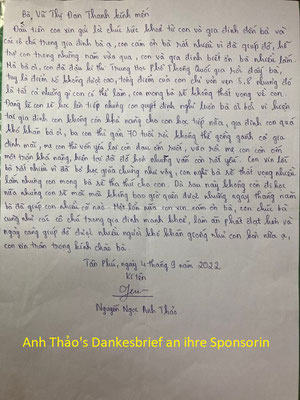 Bà Vũ Thị Đan Thanh kính mến
Đầu tiên con xin gửi lời chúc sức khoẻ từ con và gia đình đến bà và
các cô chú trong gia đình bà ạ, con cảm ơn bà rất nhiều vì đã giúp đỡ, hỗ
trợ con trong những năm vừa qua, con và gia đình biết ơn bà nhiều lắm.
Mà bà ơi, con đậu kì thi Trung Học Phổ Thông Quốc gia rồi đấy bà,
tuy là điểm số không được cao, tổng điểm của con chỉ vỏn vẹn 5.8 nhưng đó
là tất cả những gì con có thể làm, con mong bà sẽ không thất vọng về con.
Đáng lí con sẽ học lên tiếp nhưng con quyết định nghỉ luôn bà ơi bởi vì hiện
tại gia đình con không còn khả năng cho con học tiếp nữa, gia đình con quá
khó khăn bà ơi, ba con thì gần 70 tuổi rồi không thể gồng gánh cả gia
đình mãi, mẹ con thì vẫn yếu lại còn đau ốm suốt, vừa rồi mẹ con còn ốm
một trận khá nặng, hiện tại đã đỡ hơn nhưng vẫn còn rất yếu. Con xin lỗi
bà rất nhiều vì đã bỏ học giữa chừng như vậy, con nghĩ bà sẽ thất vọng nhiều
lắm nhưng con mong bà sẽ tha thứ cho con. Dù sau này không còn đi học
nữa nhưng con sẽ mãi mãi không bao giờ quên được những ngày tháng năm
bà đã giúp con nhiều cỡ nào. Một lần nữa con xin cảm ơn bà, con chúc bà
cùng như các cô chú trong gia đình mạnh khoẻ, làm ăn phát đạt luôn và
ngày càng giúp đỡ được nhiều người khó khăn giống như con hơn nữa ạ,
con xin trân trọng kính chào bà.
Tân Phú, ngày 4 tháng 9 năm 2022
Kí tên
Nguyễn Ngọc Anh Thảo
Anh Thảo's Dankesbrief an ihre Sponsorin